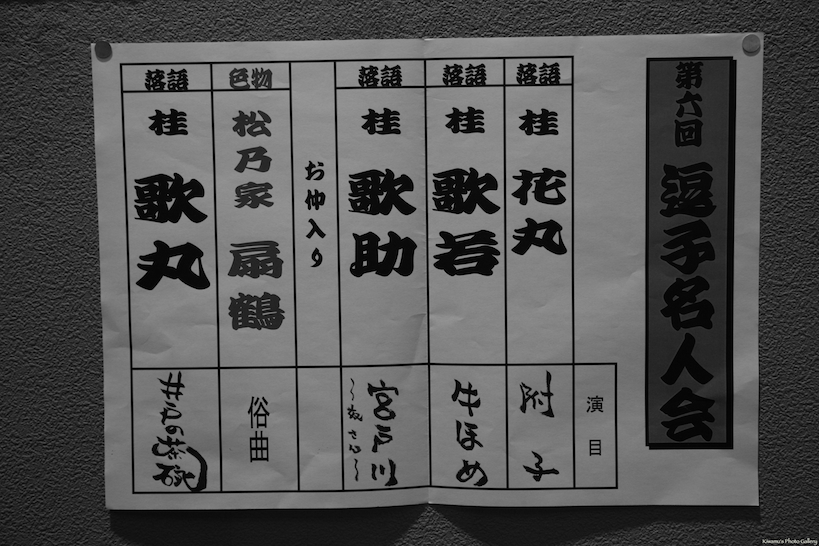 第六回 逗子名人会
演目
落語 桂 花丸 附子
落語 桂 歌若 牛ほめ
落語 桂 歌助 宮戸川
お仲入り
色物 松乃家 扇鶴 俗曲
落語 桂 歌丸 井戸の茶碗
Kiwamu's Photo Gallery